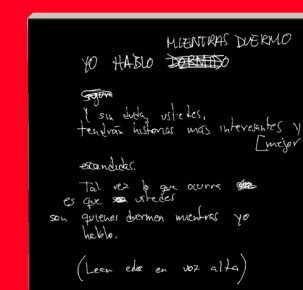 MIENTRAS DUERMO
YO HABLO DORMIDO
Y sin duda, ustedes,
tendrán historias más interesantes y
[mejor
escondidas.
Tal vez lo que ocurra
es que ustedes
son quienes duermen mientras yo
hablo.
(Lean esto en voz alta)